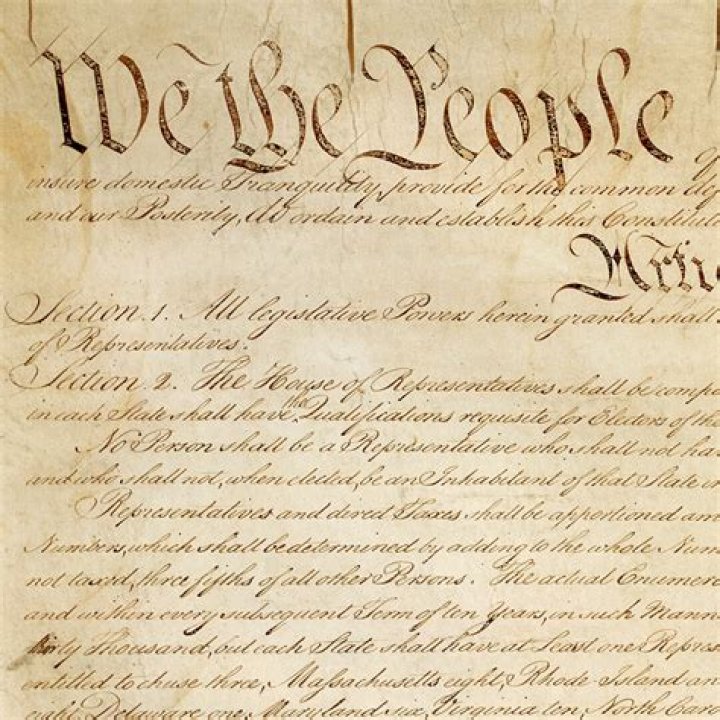 We the People
insure domestic Tranquility, provide for the common def
and our Posterity, do ordain and establish this Constitut
Arti
Section. 1. All legislative Powers herein granted shall
of Representatives.
Section. 2. The House of Representatives shall be compo
in each State shall have the Qualifications requisite for Electors of the
No Person shall be a Representative who shall not ha
and who shall not, when elected, be an Inhabitant of that State in
Representatives and direct Taxes shall be apportioned am
Numbers, which shall be determined by adding to the whole Num
not taxed, three fifths of all other Persons. The actual Enumera
and within every subsequent Term of ten Years, in such Mann
thirty Thousand, but each State shall have at Least one Repres
entitled to chuse three, Massachusetts eight, Rhode-Island an
eight, Delaware one, Maryland six, Virginia ten, North Caro